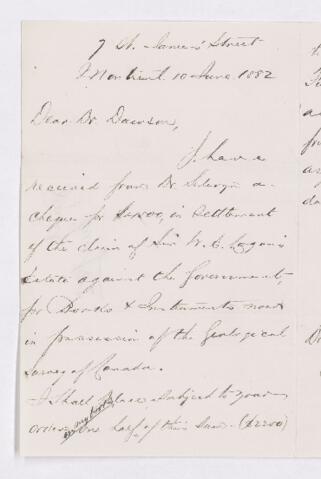 7 St. James's Street
Montreal. 10 June. 1882
Dear Dr Dawson,
I have
received from Dr Selwyn a
cheque for in settlement
of the claim of Sir W. E. Logan's
Estate against the Government,
for Books & Instruments now
in possession of the Geological
Survey of Canada.
I shall place, subject to your
order, one half of this sum. ($2200)